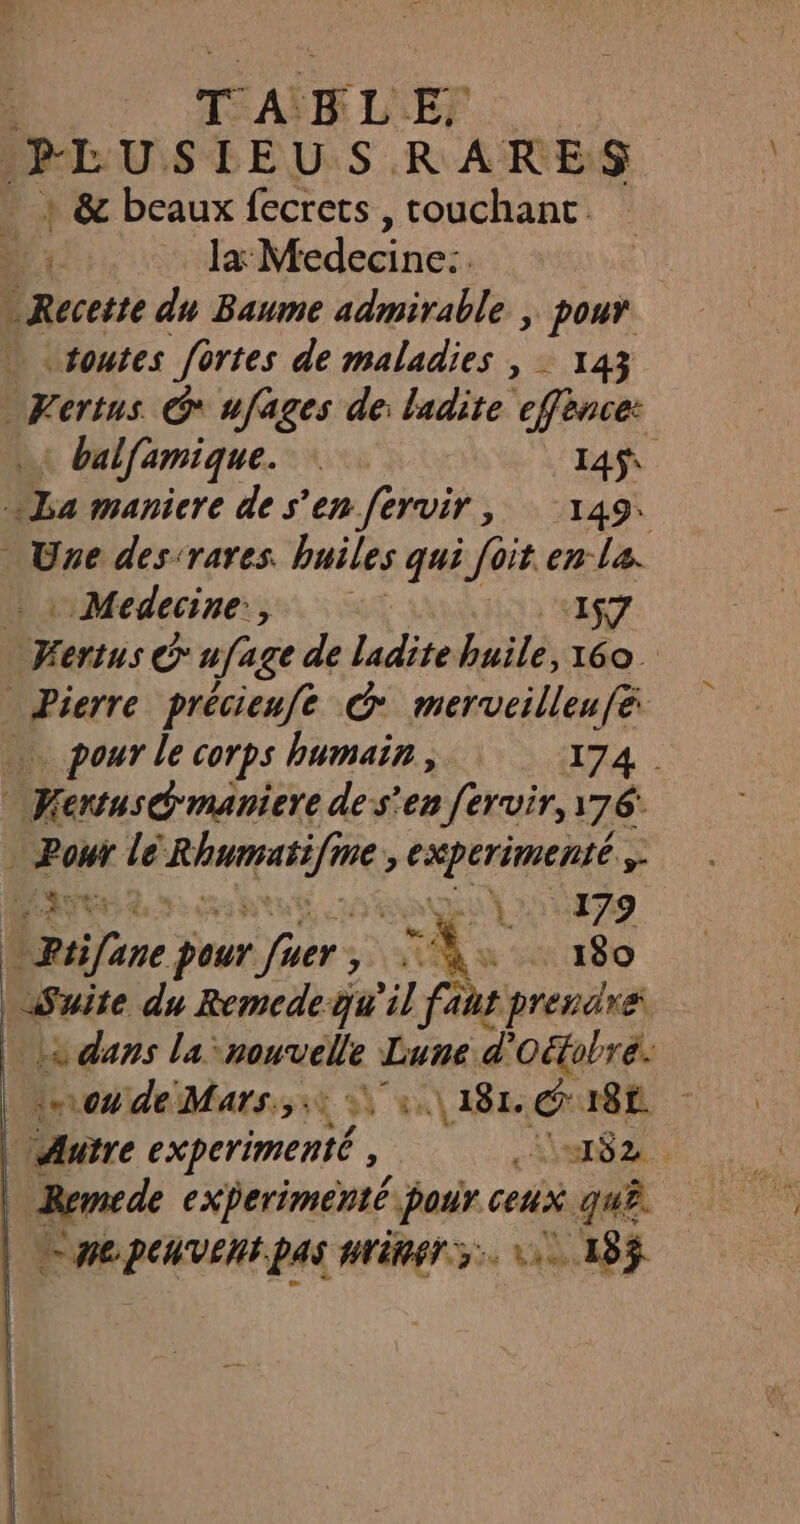 TABLE
PLUSIEUS RARES
& beaux ſecrets, touchant
la Medecine.
Recette du Baume admirable, pour
toutes ſortes de maladies, 143
Vertus & uſages de ladite eſſence
balſamique. 145
La maniere de s'en ſervir, 149
Une des rares huiles qui ſoit en la
Medecine, 157
Vertus & uſage de ladite huile, 160
Pierre précieuſe & merveilleuſe
pour le corps humain, 174
Vertus & maniere de s'en ſervir, 176
Pour le Rhumatiſme, experimenté,
179
Ptiſane pour ſuer, 180
Suite du Remede qu'il faut prendre
dans la nouvelle Lune d'Octobre
ou de Mars, 181. & 181
Autre experimenté, 182
Remede experimenté pour ceux qui
ne peuvent pas uriner, 183